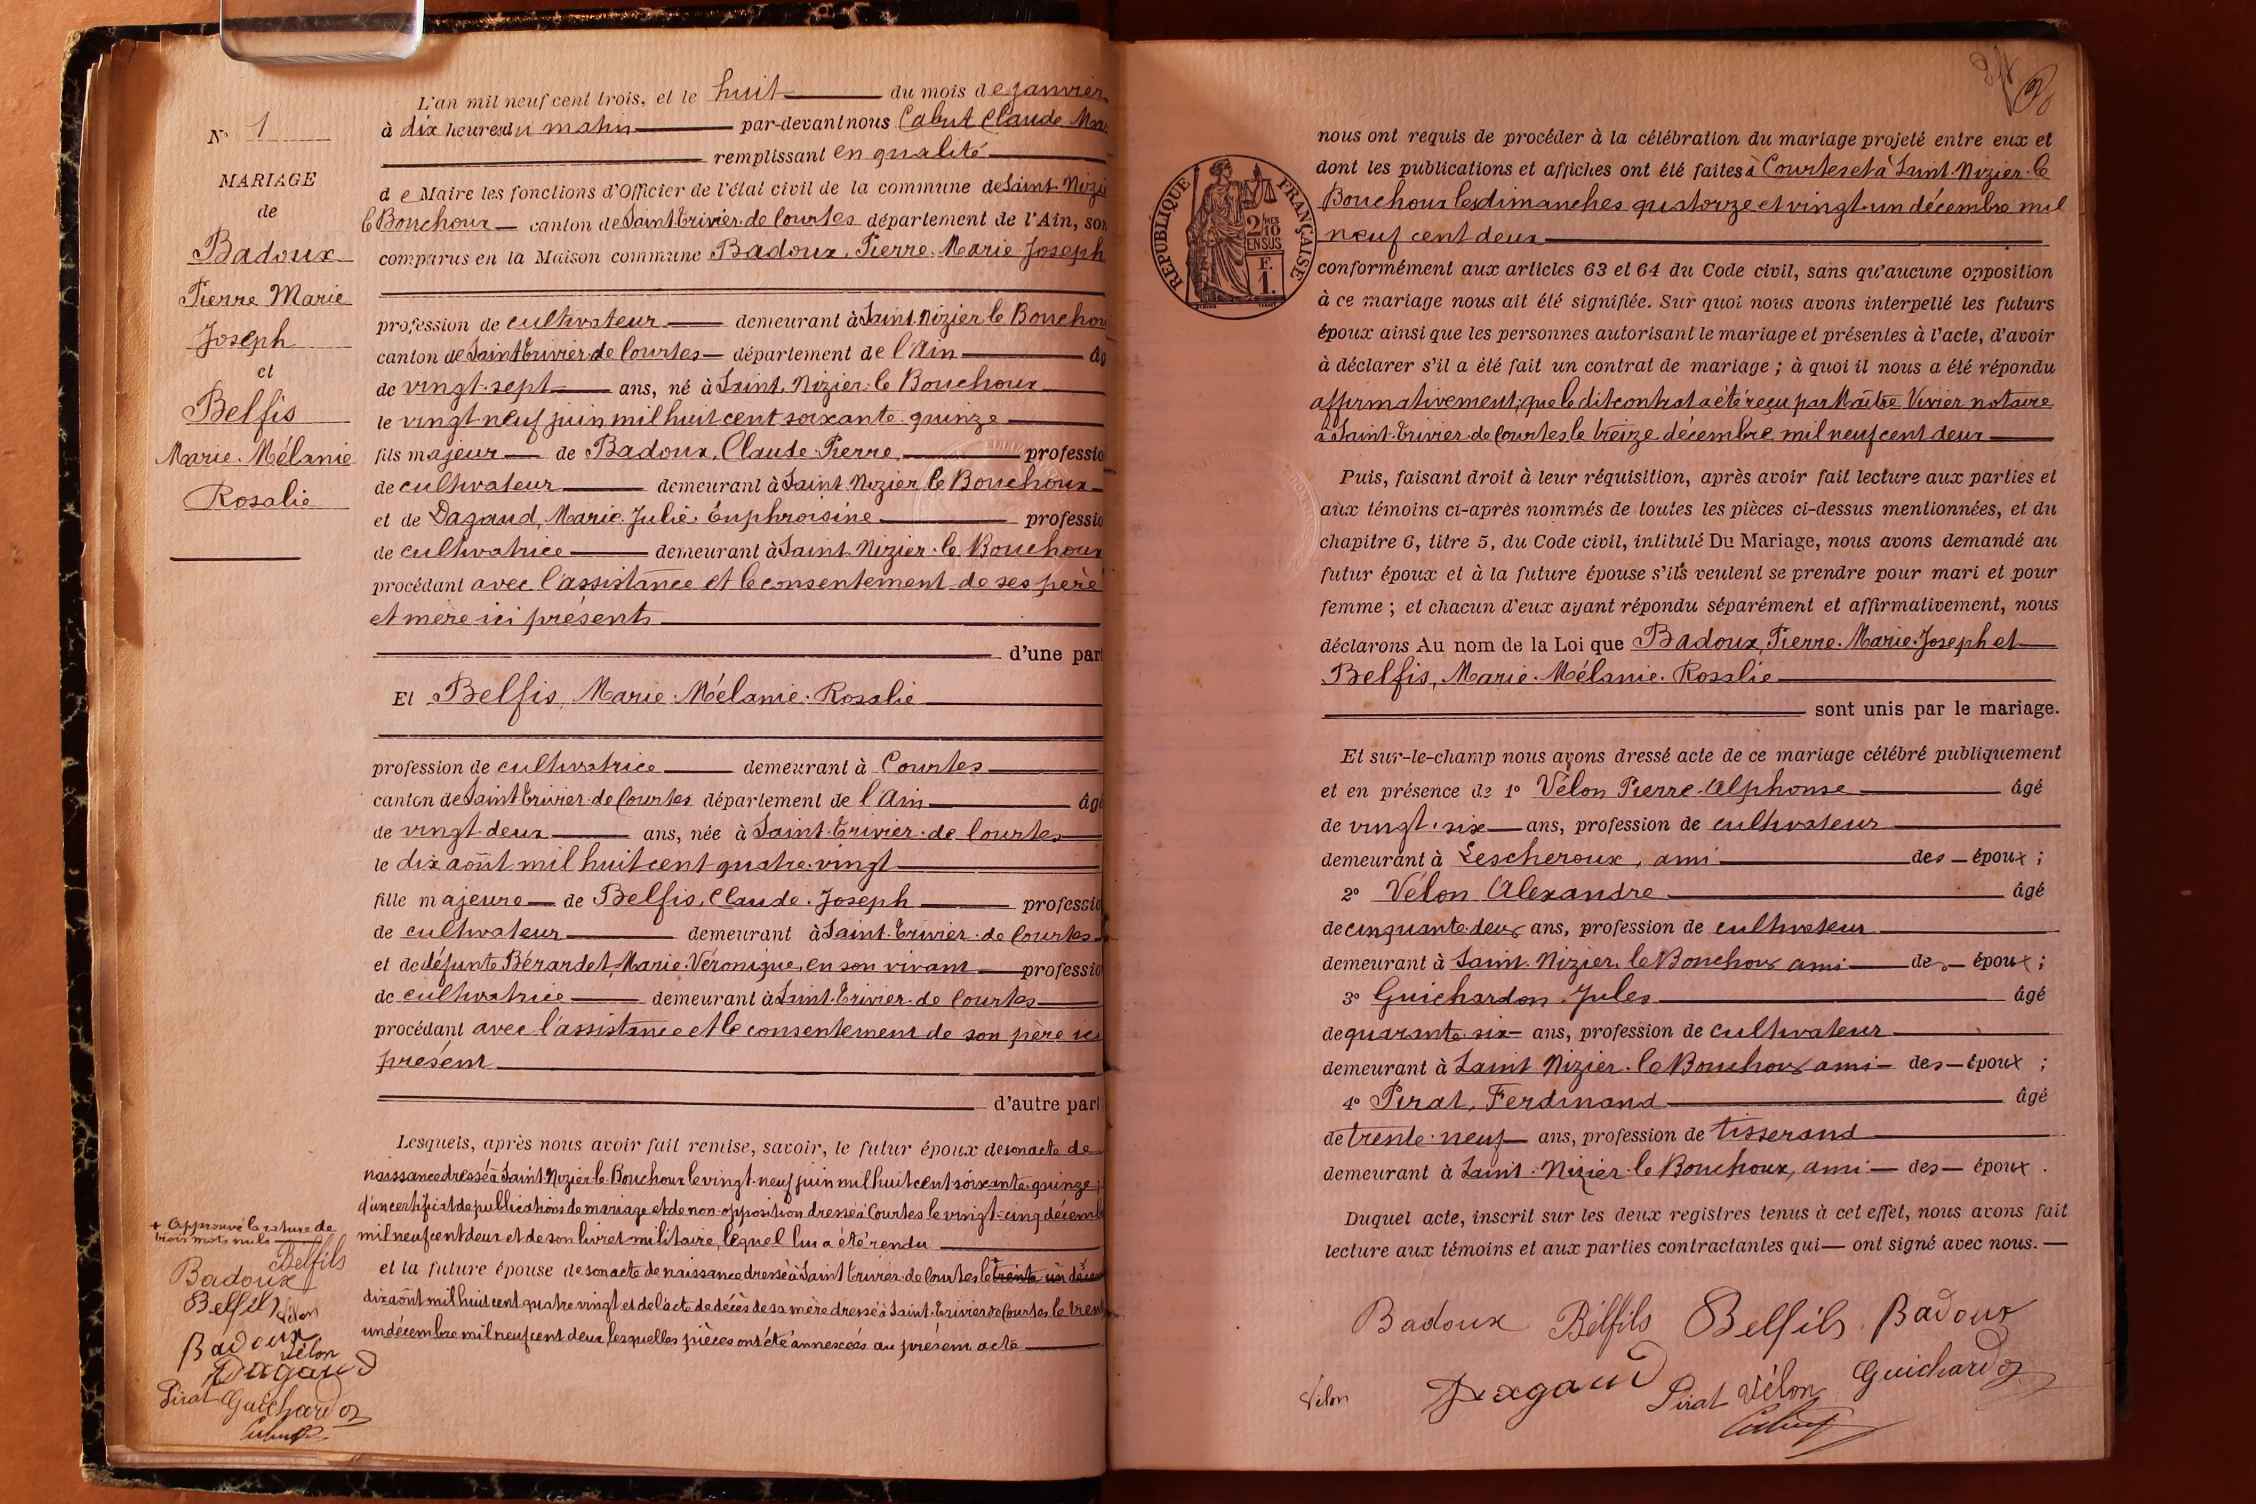 N° 1
MARIAGE
de
Badoux
Pierre Marie
Joseph
et
Belfis
Marie. Mélanie
Rosalie
L'an mil neuf cent trois, et le huit du mois de janvier
à dix heures du matin par-devant nous Cabut Claude Mar
remplissant en qualité
de Maire les fonctions d'Officier de l'état civil de la commune de Saint Nizi
le Bouchoux canton de Saint Trivier de Courtes département de l'Ain, son
comparus en la Maison commune Badoux, Pierre. Marie Joseph
profession de cultivateur demeurant à Saint Nizier le Bouchou
canton de Saint Trivier de Courtes département de l'Ain âg
de vingt-sept ans, né à Saint Nizier-le Bouchoux
le vingt neuf juin mil huit cent soixante-quinze
fils majeur de Badoux, Claude Pierre, professio
de cultivateur demeurant à Saint Nizier le Bouchoux
et de Dagaud, Marie Julie Euphroisine professio
de cultivatrice demeurant à Saint Nizier-le Bouchoux
procédant avec l'assistance et le consentement de ses père
et mère ici présents
d'une part
Et Belfis, Marie. Mélanie. Rosalie
profession de cultivatrice demeurant à Courtes
canton de Saint Trivier de Courtes département de l'Ain âgé
de vingt deux ans, née à Saint Trivier de Courtes
le dix août mil huit cent quatre-vingt
fille majeure de Belfis, Claude Joseph professio
de cultivateur demeurant à Saint Trivier de Courtes
et de défunte Bérardet, Marie Véronique, en son vivant professio
de cultivatrice demeurant à Saint Trivier de Courtes
procédant avec l'assistance et le consentement de son père ici
présent
d'autre part
Lesquels, après nous avoir fait remise, savoir, le futur époux de son acte de
naissance dressé à Saint Nizier le Bouchoux le vingt-neuf juin mil huit cent soixante-quinze;
d'un certificat de publications de mariage et de non-opposition dressé à Courtes le vingt-cinq décemb
mil neuf cent deux et de son livret militaire, lequel lui a été rendu
et la future épouse de son acte de naissance dressé à Saint Trivier de Courtes le trente un décem
dix août mil huit cent quatre vingt et de l'acte de décès de sa mère dressé à Saint Trivier de Courtes le trent
un décembre mil neuf cent deux, lesquelles pièces ont été annexées au présent acte
+ Approuvé la rature de
trois mots nuls
Belfils
Badoux
Belfils
Vélon
Badoux
Vélon
Dagaud
Pirat Guichardon
Cabut
nous ont requis de procéder à la célébration du mariage projeté entre eux et
dont les publications et affiches ont été faites à Courtes et à Saint-Nizier-le
Bouchoux les dimanches quatorze et vingt-un décembre mil
neuf cent deux
RÉPUBLIQUE FRANÇAISE
2/10 EN SUS
F. 1.
conformément aux articles 63 et 64 du Code civil, sans qu'aucune opposition
à ce mariage nous ait été signifiée. Sur quoi nous avons interpellé les futurs
époux ainsi que les personnes autorisant le mariage et présentes à l'acte, d'avoir
à déclarer s'il a été fait un contrat de mariage ; à quoi il nous a été répondu
affirmativement; que le dit contrat a été reçu par Maître Vivier notaire
à Saint-Trivier-de Courtes le treize décembre mil neuf cent deux
Puis, faisant droit à leur réquisition, après avoir fait lecture aux parties et
aux témoins ci-après nommés de toutes les pièces ci-dessus mentionnées, et du
chapitre 6, titre 5, du Code civil, intitulé Du Mariage, nous avons demandé au
futur époux et à la future épouse s'ils veulent se prendre pour mari et pour
femme ; et chacun d'eux ayant répondu séparément et affirmativement, nous
déclarons Au nom de la Loi que Badoux, Pierre. Marie. Joseph et
Belfis, Marie. Mélanie. Rosalie
sont unis par le mariage.
Et sur-le-champ nous avons dressé acte de ce mariage célébré publiquement
et en présence de 1° Vélon Pierre-Alphonse âgé
de vingt-six ans, profession de cultivateur
demeurant à Lescheroux, ami des époux ;
2° Vélon Alexandre âgé
de cinquante-deux ans, profession de cultivateur
demeurant à Saint Nizier le Bouchoux ami des époux ;
3° Guichardon Jules âgé
de quarante six ans, profession de cultivateur
demeurant à Saint Nizier-le Bouchoux ami des époux ;
4° Pirat, Ferdinand âgé
de trente-neuf ans, profession de tisserand
demeurant à Saint-Nizier-le Bouchoux, ami des époux.
Duquel acte, inscrit sur les deux registres tenus à cet effet, nous avons fait
lecture aux témoins et aux parties contractantes qui ont signé avec nous.
Badoux Belfils Belfils Badoux
Vélon Dagaud Pirat Vélon Guichardon
Cabut